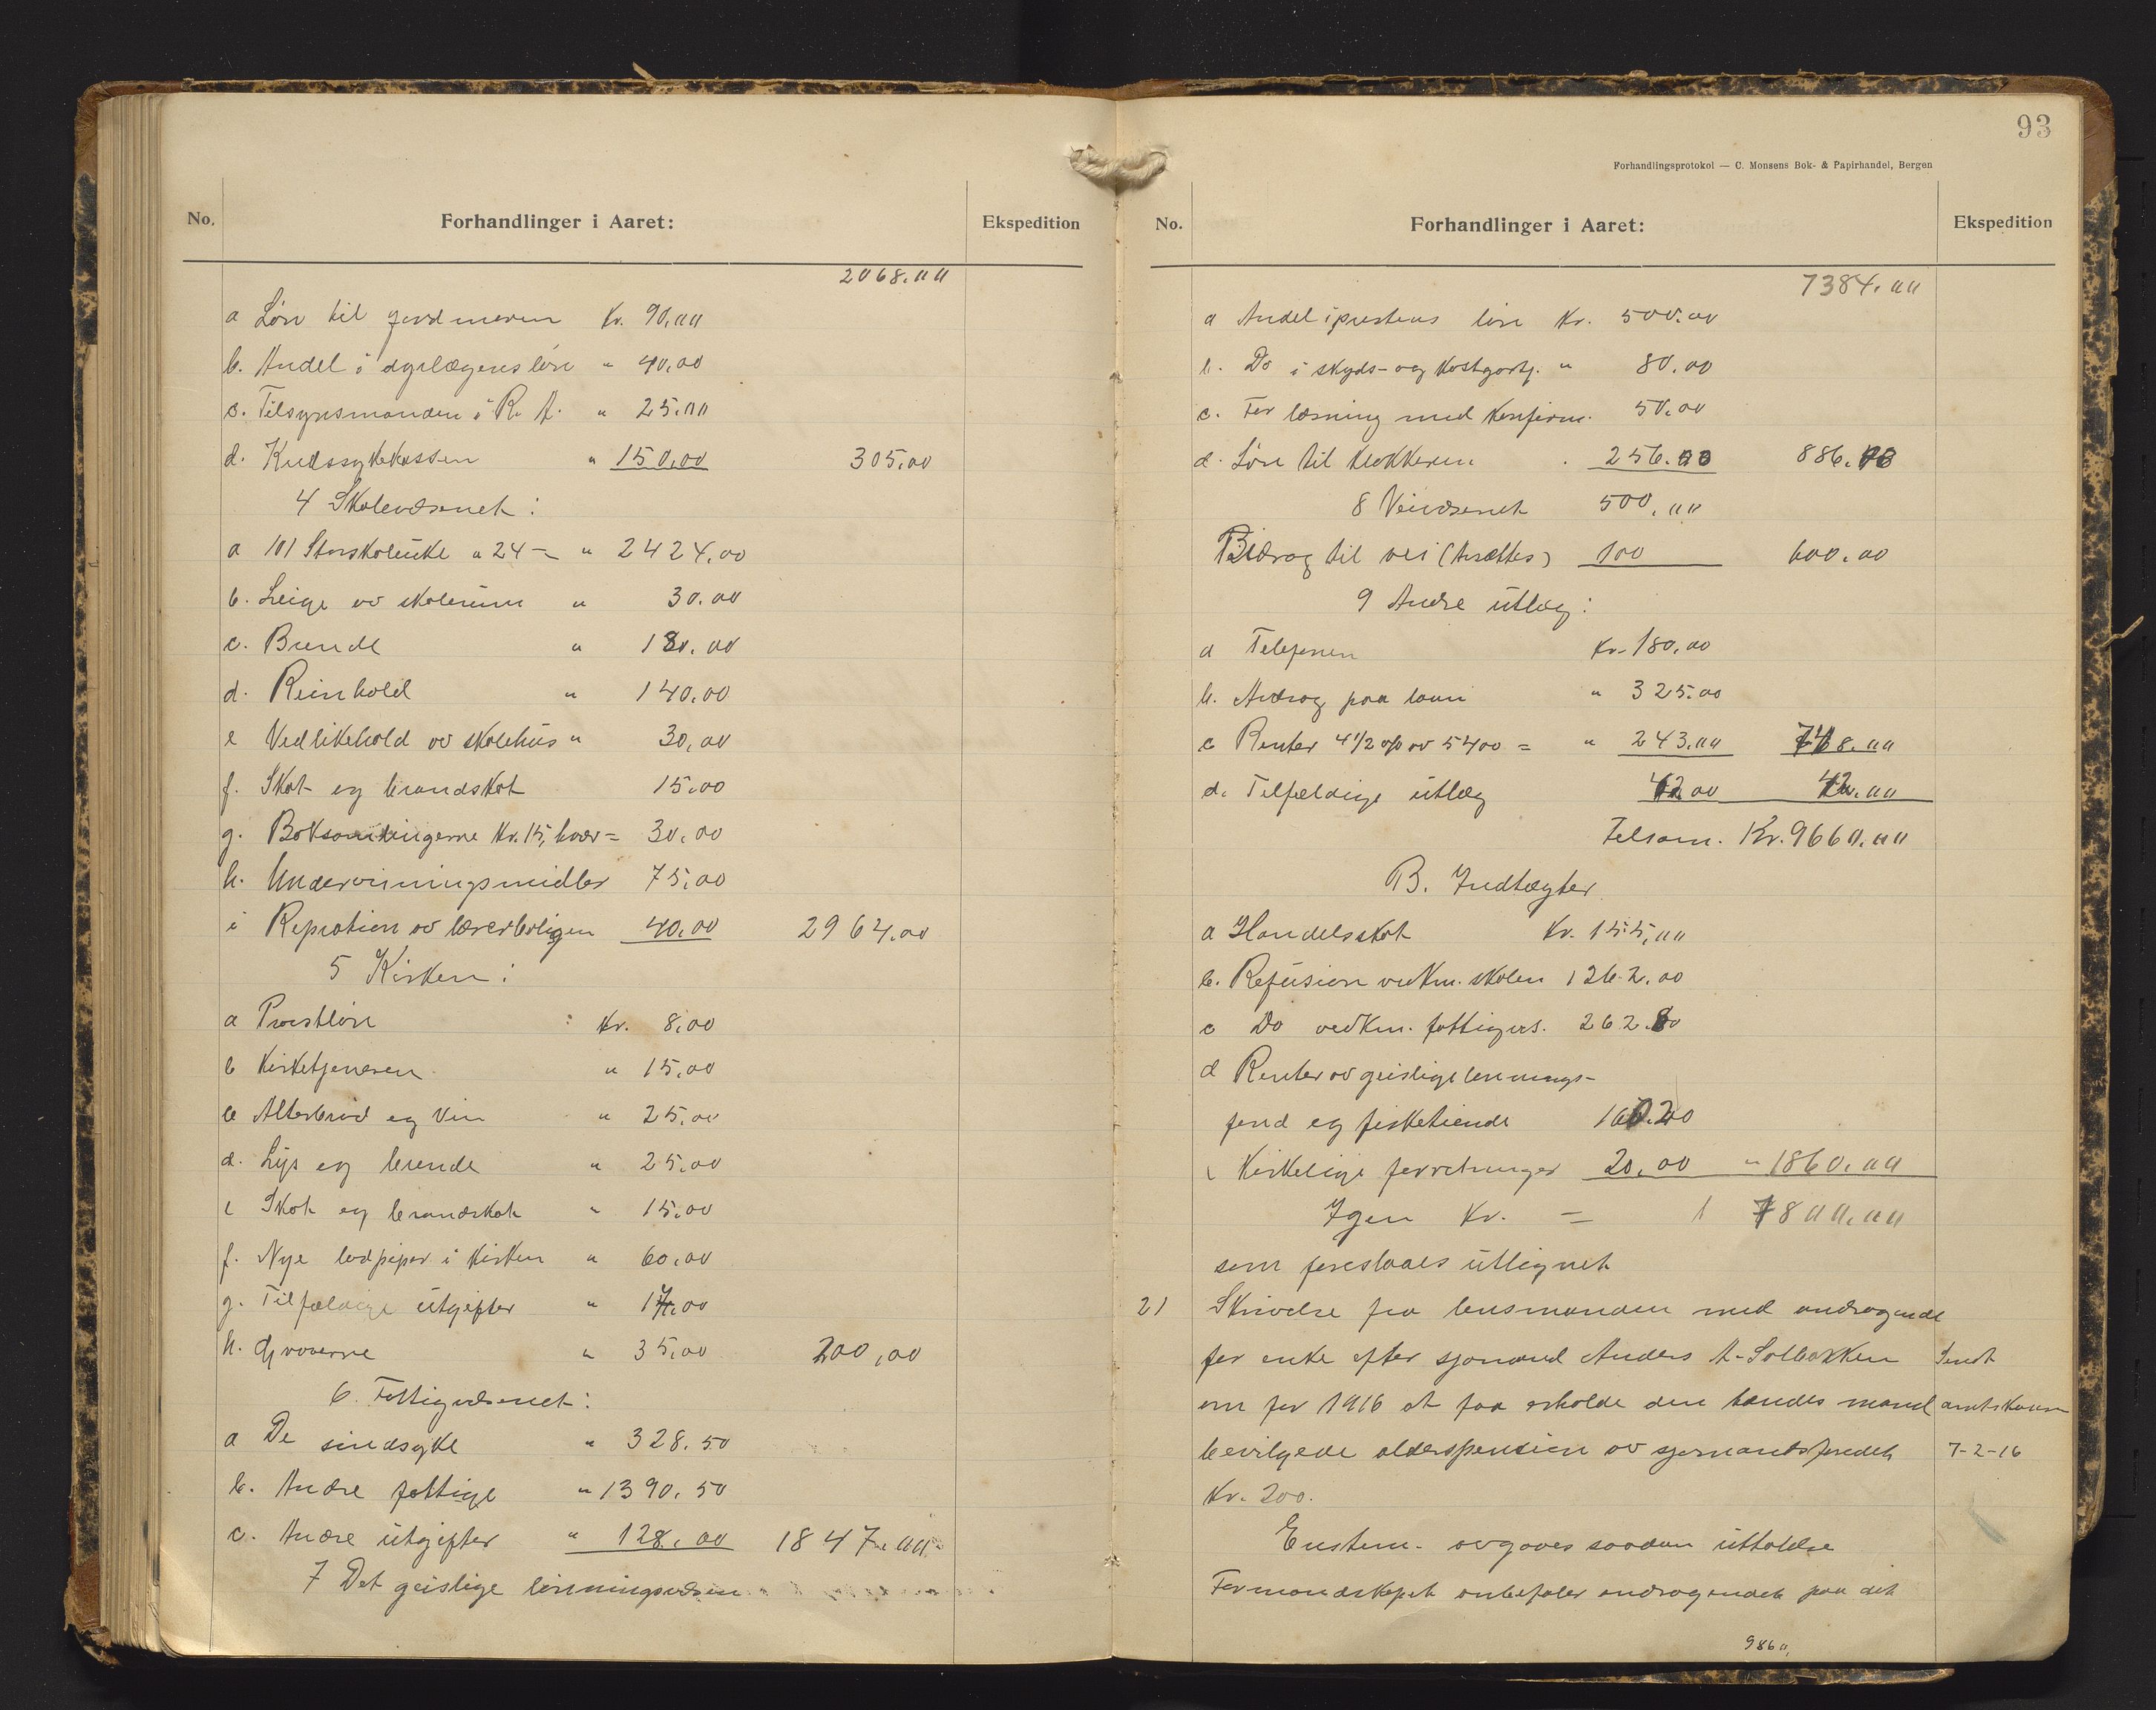 No. Forhandlinger i Aaret: Ekspedition
2068.00
a Løn til jordmoren Kr. 90,00
b. Andel i dyrlægens løn " 40,00
c. Tilsynsmanden i R. A. " 25.00
d. Kredssykekassen " 150,00 305,00
4 Skolevæsenet:
a 101 Storskoleuke a 24 — " 2424,00
b. Leige av skolerum " 30.00
c. Brende " 180.00
d. Reinhold " 140.00
e Vedlikehold av skolehus " 30,00
f. Skat og brandskat 15.00
g. Boksamlingerne Kr. 15, hver = 30.00
h. Undervisningsmidler 75,00
i Repration av lærerboligen 40.00 2964.00
5 Kirken:
a Provstløn : Kr. 8,00
b Kirketjeneren " 15,00
c Alterbrød og vin " 25.00
d. Lys og brende " 25.00
e Skat og brandskat " 15.00
f. Nye lodpiper i kirken " 60.00
g. Tilfældige utgifter " 17.00
h. Graverne " 35,00 200,00
6. Fattigvæsenet:
a De sindsyke " 328.50
b. Andre fattige " 1390.50
c. Andre utgifter " 128.00 1847.00
7 Det geislige lønningsvæsen
93
Forhandlingsprotokol — C. Monsens Bok- & Papirhandel, Bergen
No. Forhandlinger i Aaret: Ekspedition
7384.00
a Andel i prestens løn Kr. 500.00
b. Do i skyds- og kostgodtg. " 80.00
c. For læsning med konfirm. 50.00
d. Løn til klokkeren . 256.00 886.00
8 Veivæsenet 500.00
Bidrag til vei (Aasættes) 100 600.00
9 Andre utlæg:
a Telefonen Kr. 180,00
b. Avdrag paa laan " 325.00
c Renter 4 1/2 % av 5400 = " 243.00 748.00
d. Tilfældige utlæg 42.00 42.00
Tilsam. Kr. 9660.00
B. Indtægter
a Handelsskat Kr. 155,00
b. Refusion vedkm. skolen 1262.00
c Do vedkm. fattigvæs. 262.80
d Renter av geislige lønnings-
fond og fisketiende 160.20
e Kirkelige forretninger 20.00 " 1860.00
Igen Kr. = 7800.00
som foreslaaes utlignet
21 Skrivelse fra lensmanden med andragende
for enke efter sjømand Anders A. Solbakken Sendt
om for 1916 at faa erholde den hendes mand amtskom
bevilgede alderspension av sjømandsfondet 7-2-16
Kr. 200.
Enstem. avgaves saadan uttalelse
Formandskapet anbefaler andragendet paa det
9860,